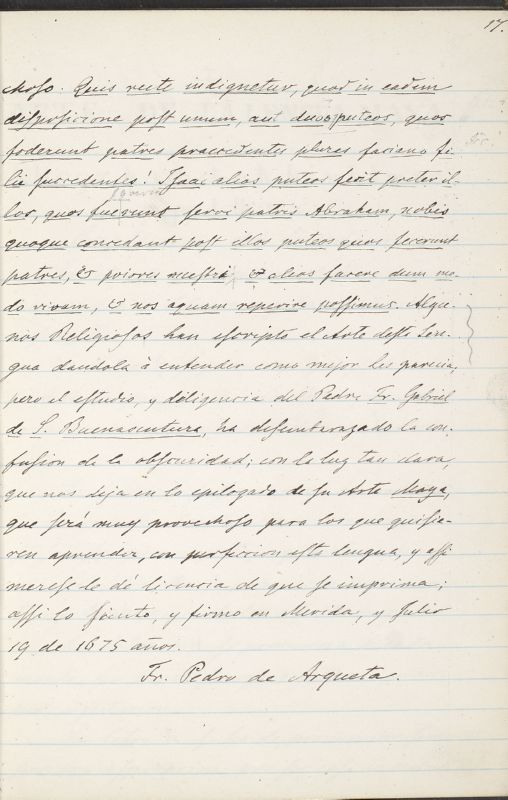 17.
choso. Quis recte indignetur, quod in eadem
dispositione post unum, aut duos puteos, quos
foderunt patres praecedentes plures faciant fi-
lii succedentes! Isaac alios puteos fecit preter il-
los, quos fuerunt servi patris Abraham, nobis
quoque concedant post illos puteos quos fecerunt
patres, & priores nostri & alios facere dum mo-
do vivam, & nos aquam reperire possimus. Algu-
nos Religiosos han escripto el Arte desta Len-
gua dandola â entender como mejor les parecia,
pero el estudio, y diligencia del Padre Fr. Gabriel
de S. Buenaventura, ha desembarazado la con-
fusion de la obscuridad; con la luz tan clara,
que nos deja en lo epilogado de su Arte Maya,
que será muy provechoso para los que quisie-
ren aprender, con perfeccion esta lengua, y assi
merese le dé licencia de que se imprima;
assi lo siento, y firmo en Merida, y Julio
19 de 1675 años.
Fr. Pedro de Arqueta.